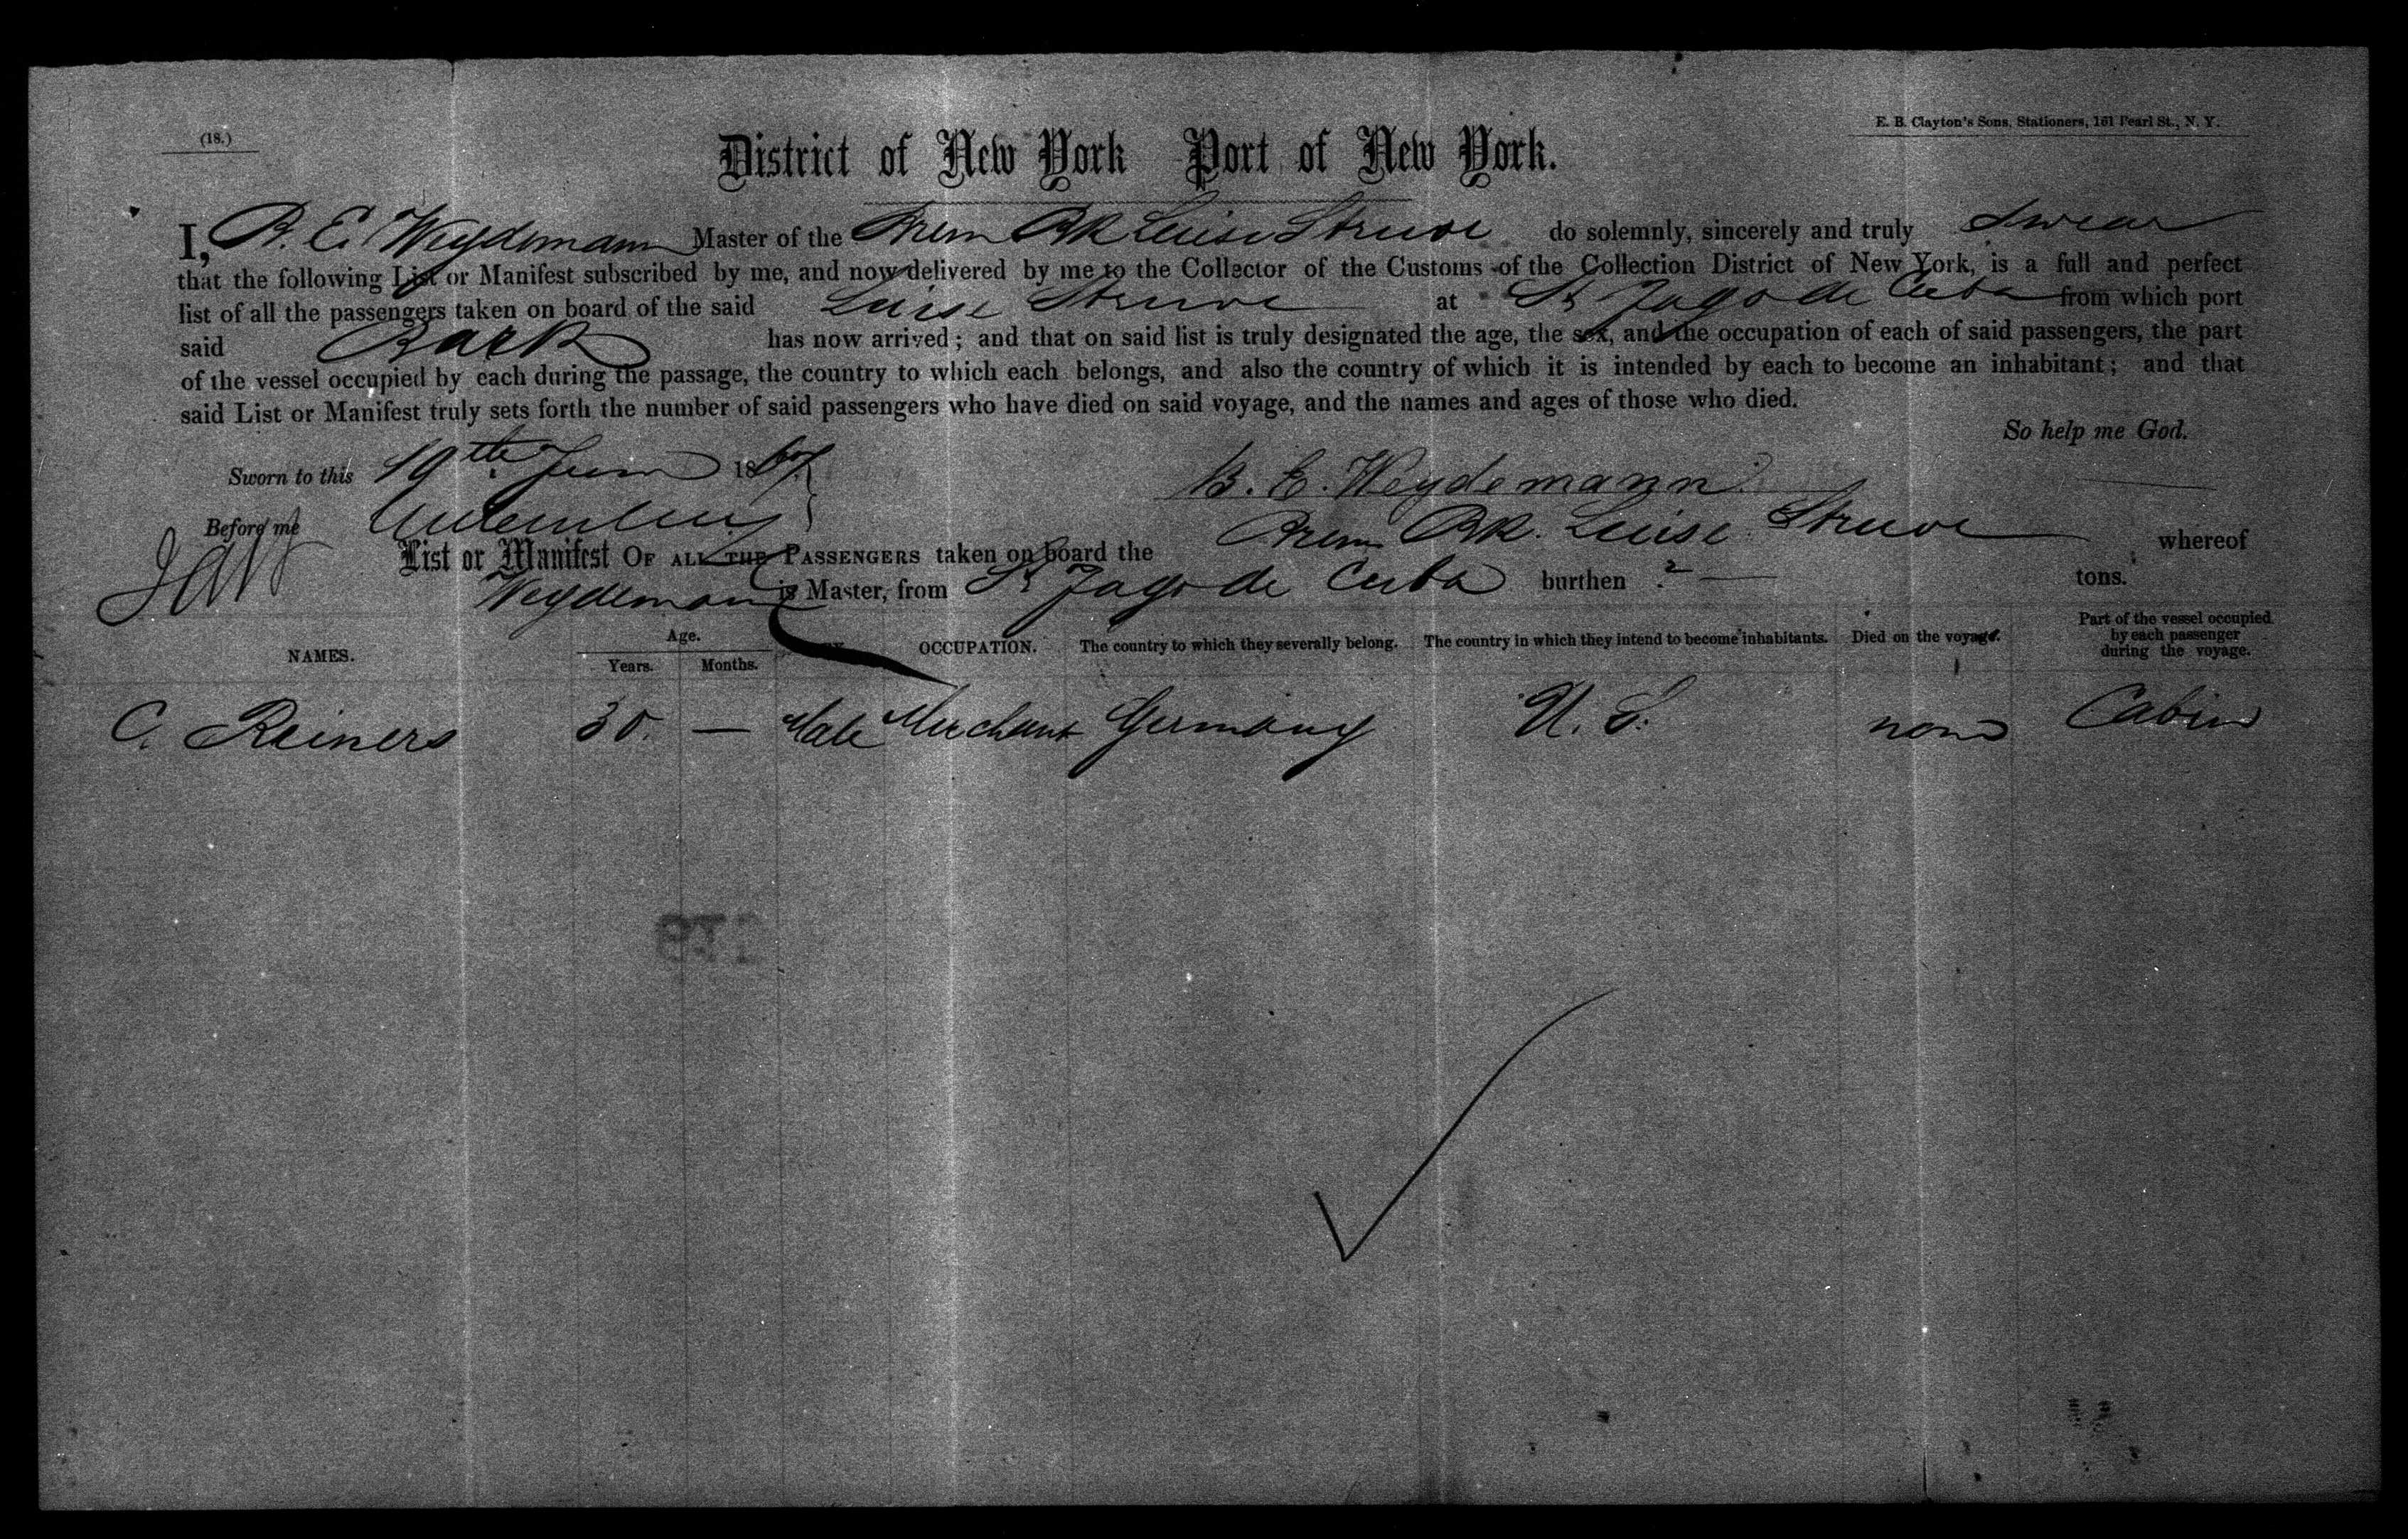 (18.)
E. B. Clayton's Sons, Stationers, 161 Pearl St., N. Y.
District of New York Port of New York.
I, B. E. Weydemann Master of the Brem Bk Luise Struve do solemnly, sincerely and truly swear
that the following List or Manifest subscribed by me, and now delivered by me to the Collector of the Customs of the Collection District of New York, is a full and perfect
list of all the passengers taken on board of the said Luise Struve at St Jago de Cuba from which port
said Bark has now arrived; and that on said list is truly designated the age, the sex, and the occupation of each of said passengers, the part
of the vessel occupied by each during the passage, the country to which each belongs, and also the country of which it is intended by each to become an inhabitant; and that
said List or Manifest truly sets forth the number of said passengers who have died on said voyage, and the names and ages of those who died.
So help me God.
Sworn to this 19th June 1867
B. E. Weydemann
Before me
List or Manifest OF ALL THE PASSENGERS taken on board the Brem Bk. Luise Struve whereof
Weydemann is Master, from St Jago de Cuba burthen ? — tons.
NAMES. Age. Years. Months. OCCUPATION. The country to which they severally belong. The country in which they intend to become inhabitants. Died on the voyage. Part of the vessel occupied by each passenger during the voyage.
C. Reiners 30. — Male Merchant Germany U. S. none Cabin